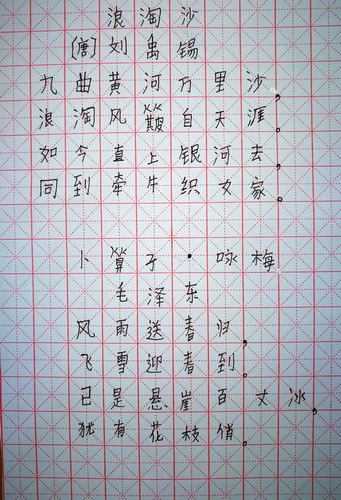 浪淘沙
(唐)刘禹锡
九曲黄河万里沙,
浪淘风簸自天涯。
如今直上银河去,
同到牵牛织女家。
卜算子·咏梅
毛泽东
风雨送春归,
飞雪迎春到。
已是悬崖百丈冰,
犹有花枝俏。